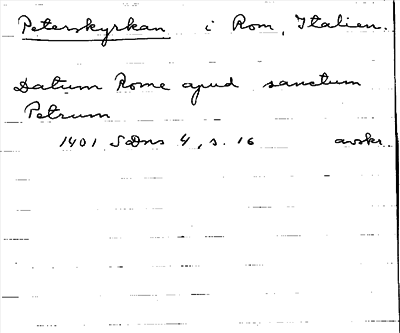 Peterskyrkan i Rom, Italien.
Datum Rome apud sanctum
Petrum
1401 SDns 4, s. 16 avskr.